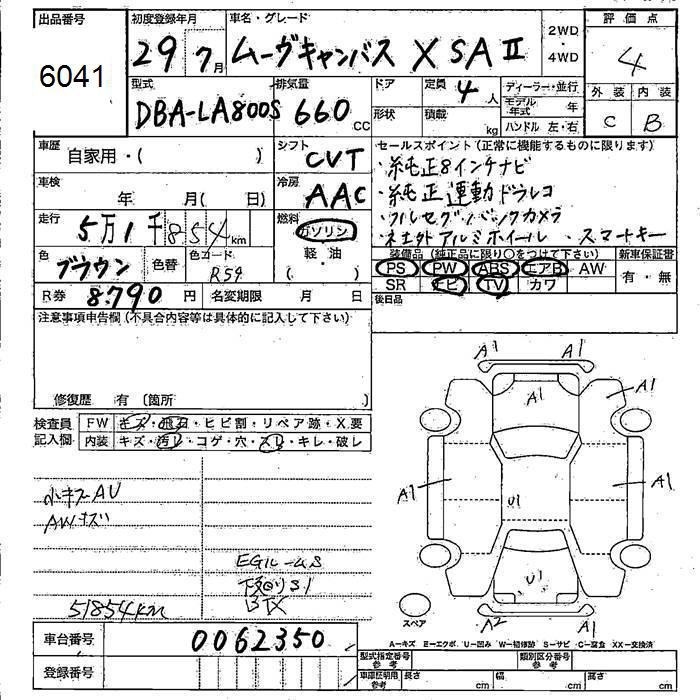 出品番号 初度登録年月 車名・グレード 評価点
6041 29 7月 ムーヴキャンバス X SAⅡ 2WD・4WD 4
型式 排気量 ドア 定員 ディーラー・並行 外装 内装
DBA-LA800S 660 CC 4人 モデル年式 年 C B
形状 積載 kg ハンドル 左・右
車歴 自家用・( ) シフト CVT
セールスポイント(正常に機能するものに限ります)
・純正8インチナビ
・純正連動ドラレコ
・フルセグ・バックカメラ
・社外アルミホイール ・スマートキー
車検 年 月( 日) 冷房 AAC
走行 5万1千854km 燃料 ガソリン
軽・油
( )
色 ブラウン 色替 色コード R59
装備品(純正品に限り○をつけて下さい) 新車保証書
PS PW ABS エアB AW 有・無
SR ナビ TV カワ
R券 8.790円 名変期限 月 日
後日品
注意事項申告欄(不具合内容等は具体的に記入して下さい)
修復歴 有 (箇所 )
検査員記入欄 FW キズ・飛石・ヒビ割・リペア跡・X.要
内装 キズ・汚レ・コゲ・穴・スレ・キレ・破レ
小キズAU
AWキズ
下回りS1
51854km
A1 A1
A1 A1
A1 U1 A1
U1
A2 A1
スペア
A-キズ E-エクボ U-凹み W-補修跡 S-サビ C-腐食 XX-交換済
車台番号 0062350
登録番号
型式指定番号 参考 類別区分番号 参考
車庫証明用 参考 長さ cm 幅 cm 高さ cm